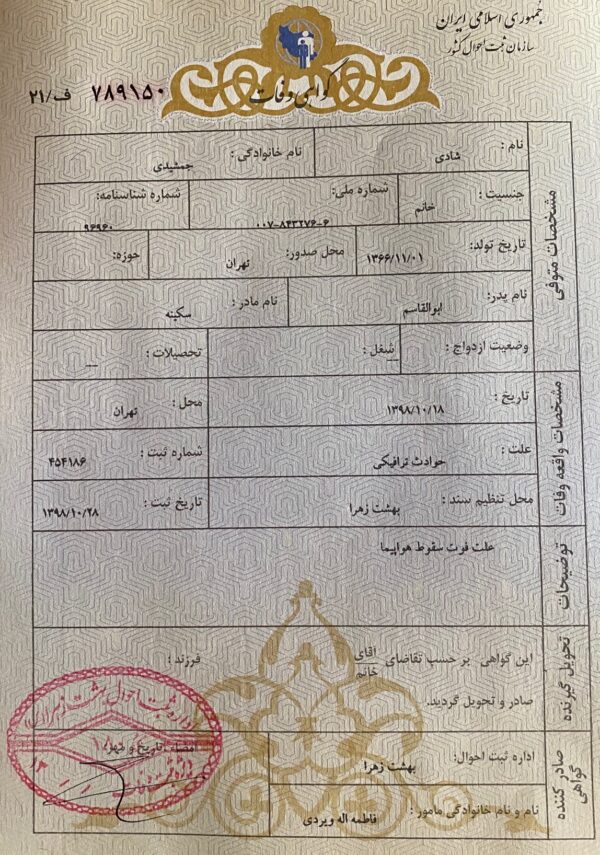 جمهوری اسلامی ایران
سازمان ثبت احوال کشور
گواهی وفات
۲۱/ف ۷۸۹۱۵۰
مشخصات متوفی
نام : شادی نام خانوادگی : جمشیدی
جنسیت : خانم شماره ملی: ۰۰۷-۸۴۳۲۷۶-۶ شماره شناسنامه: ۹۶۹۶۰
تاریخ تولد: ۱۳۶۶/۱۱/۰۱ محل صدور: تهران حوزه:
نام پدر: ابوالقاسم نام مادر : سکینه
وضعیت ازدواج : شغل : — تحصیلات : —
مشخصات واقعه وفات
تاریخ : ۱۳۹۸/۱۰/۱۸ محل : تهران
علت : حوادث ترافیکی شماره ثبت : ۴۵۴۱۸۶
محل تنظیم سند : بهشت زهرا تاریخ ثبت : ۱۳۹۸/۱۰/۲۸
توضیحات
علت فوت سقوط هواپیما
تحویل گیرنده
این گواهی بر حسب تقاضای آقای فرزند :
خانم
صادر و تحویل گردید.
صادر کننده گواهی
اداره ثبت احوال: بهشت زهرا امضاء، تاریخ و مهر:
نام و نام خانوادگی مامور : فاطمه اله ویردی